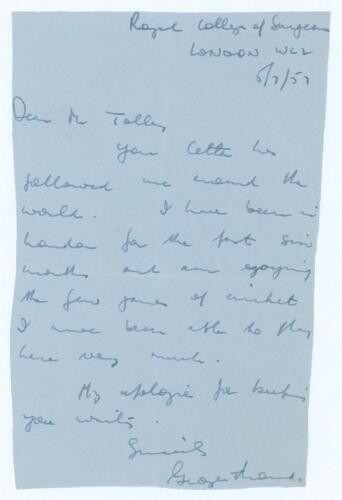 Royal College of Surgeons
LONDON WC2
5/7/57
Dear Mr Tolley
Your letter has
followed me around the
world. I have been in
London for the past six
months and am enjoying
the few games of cricket
I have been able to play
here very much.
My apologies for keeping
you waiting.
Sincerely
George Thoms.